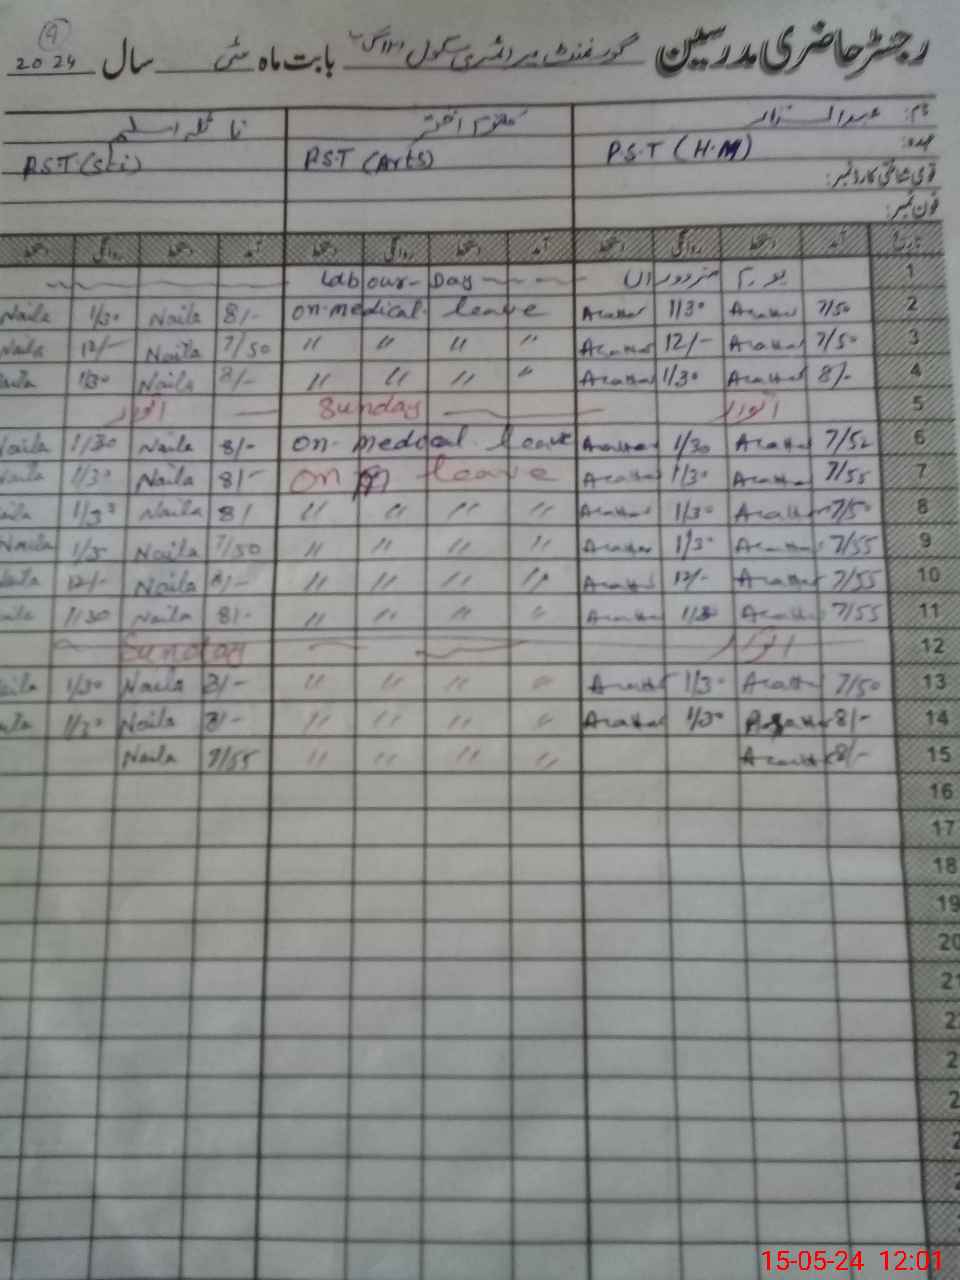 رجسٹر حاضری مدرسین گورنمنٹ پرائمری سکول بابت ماہ مئی سال 2024
4
نام: عبدالستار کلثوم اختر نائلہ اسلم
عہدہ: P.S.T (H.M) P.S.T (Arts) P.S.T (Sci)
قومی شناختی کارڈ نمبر:
فون نمبر:
تاریخ آمد دستخط روانگی دستخط آمد دستخط روانگی دستخط آمد دستخط روانگی دستخط
1 یوم مزدوراں Labour-Day
2 7/50 1/30 on medical leave 8/- Naila 1/30 Naila
3 7/50 12/- " " " " 7/50 Naila 12/- Naila
4 8/- 1/30 " " " " 8/- Naila 1/30
5 اتوار Sunday اتوار
6 7/52 1/30 on medical leave 8/- Naila 1/30 Naila
7 7/55 1/30 on leave 8/- Naila 1/30 Naila
8 7/50 1/30 " " " " 8/ Naila 1/30
9 7/55 1/30 " " " " 7/50 Naila 1/30 Naila
10 7/55 12/- " " " " 8/- Naila 12/-
11 7/55 1/30 " " " " 8/- Naila 1/30
12 اتوار Sunday
13 7/50 1/30 " " " " 8/- Naila 1/30
14 8/- 1/30 " " " " 8/- Naila 1/30
15 8/- " " " " 7/55 Naila
16
17
18
19
20
21
15-05-24 12:01